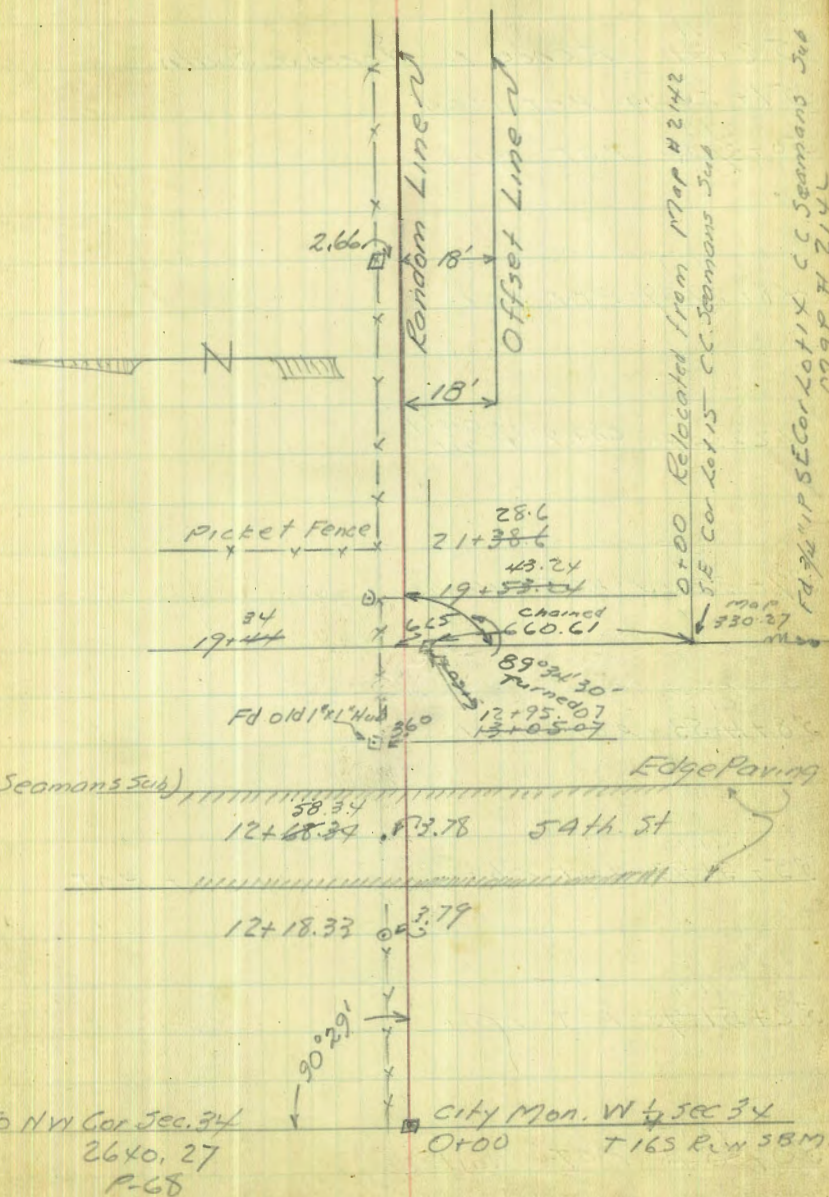 Random Line
Offset Line
2.66
18'
N
18'
0+00 Relocated from Map # 2142
S.E Cor Lot 15 C C. Seamans Sub
Fd 3/4" IP SE Cor Lot 14 C C Seamans Sub
Map # 2142
Picket Fence
28.6
21+38.6
43.24
19+53.24
34
19+44
6.65
Chained
660.61
Map
330.27
89°34'30"
Turned
12+95.07
13+05.07
Fd old 1"x1" Hub
360
Seamans Sub)
Edge Paving
58.34
12+68.34
3.78
54th St
12+18.33
3.79
90°29'
NW Cor Sec. 34
2640.27
P-68
City Mon. W 1/4 Sec 34
0+00
T 16S R W SBM